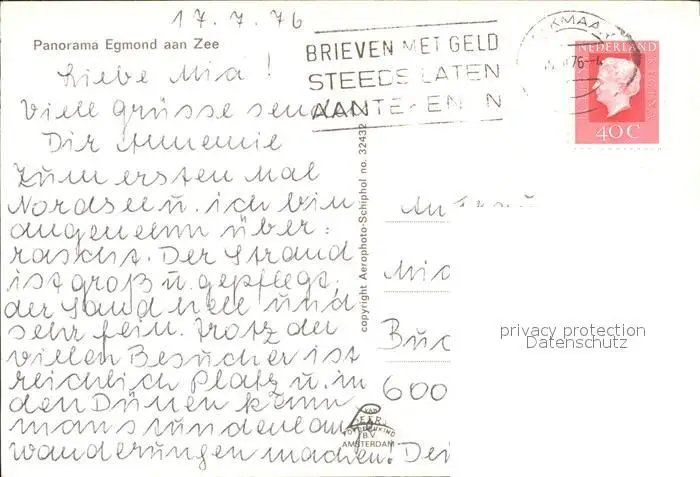 17.7.76
Panorama Egmond aan Zee
BRIEVEN MET GELD
STEEDS LATEN
AANTEKENEN
ALKMAAR
NEDERLAND
40C
Liebe Mia!
Viele Grüsse senden
Dir Annemie
Zum ersten Mal
Nordsee u. ich bin
angenehm über=
rascht. Der Strand
ist groß u. gepflegt,
der Sand hell und
sehr fein. Trotz der
vielen Besucher ist
reichlich Platz u. in
den Dünen kann
man stundenlang
wanderungen machen! Dei
copyright Aerophoto-Schiphol no. 32432
An Frau
Mia
Buc
600
VAN LEER'S
FOTODRUKIND
B.V.
AMSTERDAM
privacy protection
Datenschutz